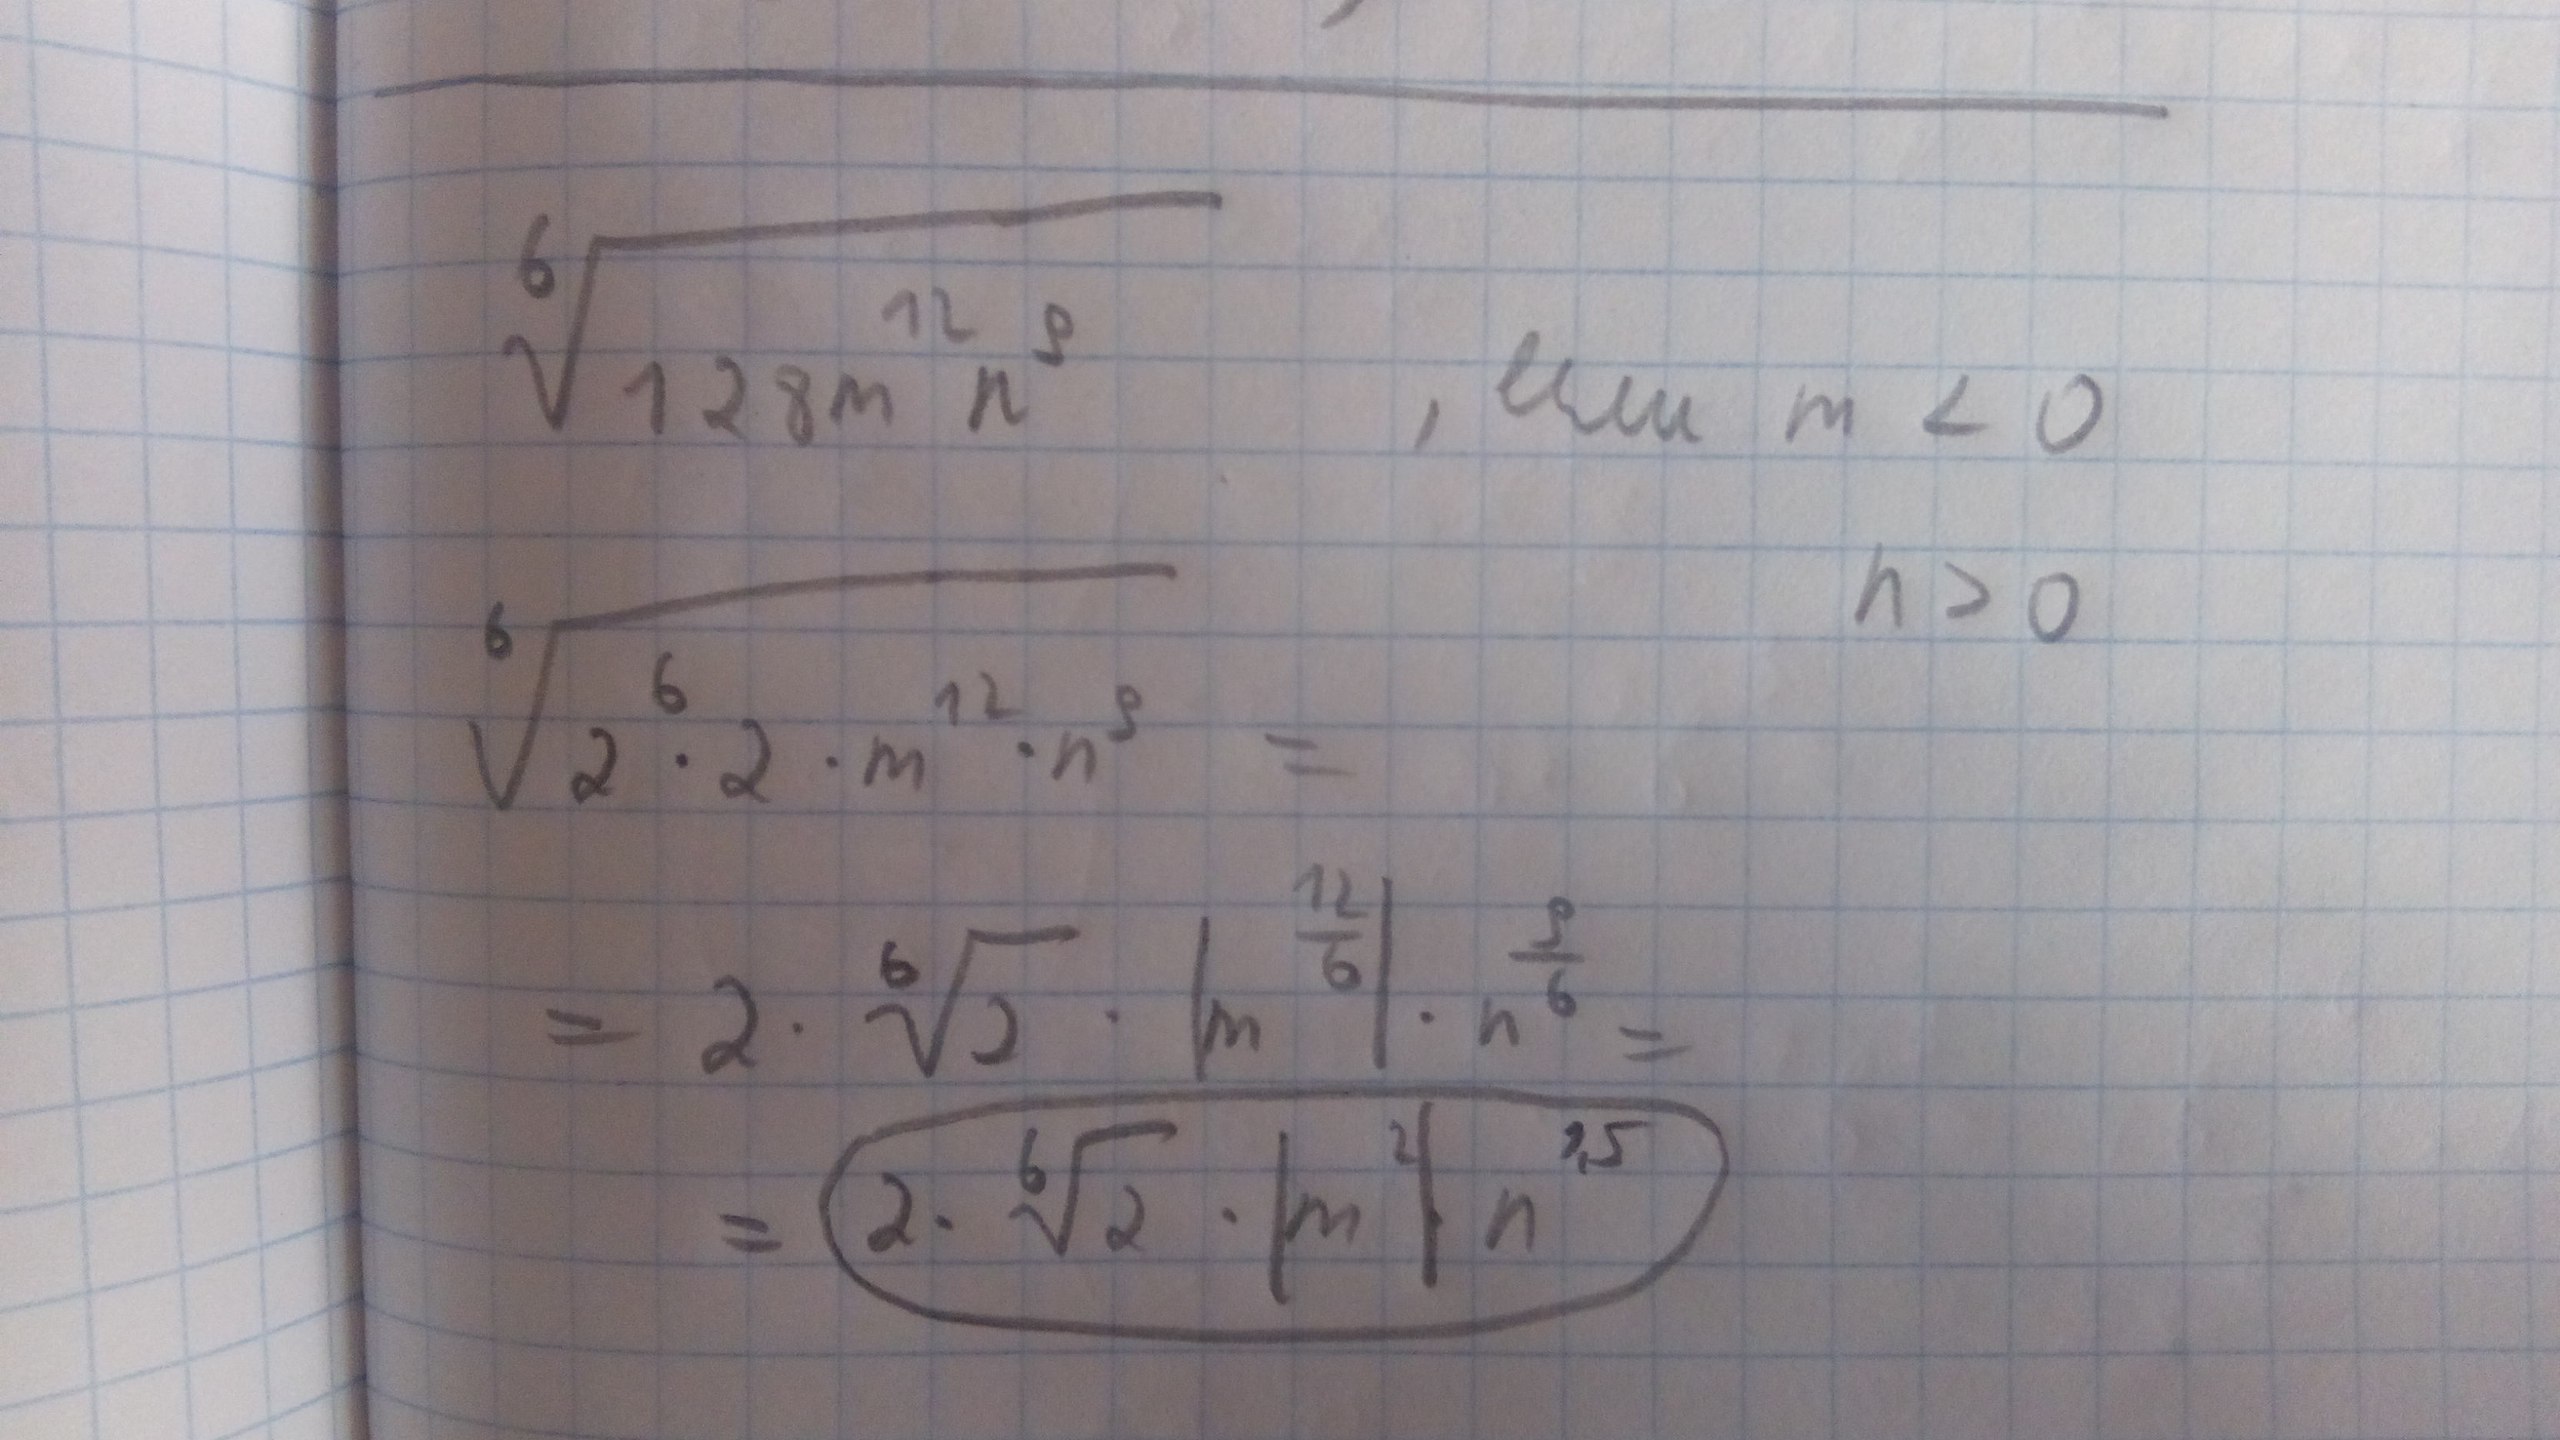 ⁶√(128m¹²n⁹) , если m < 0
n > 0
⁶√(2⁶ · 2 · m¹² · n⁹) =
= 2 · ⁶√2 · |m^(12/6)| · n^(9/6) =
= 2 · ⁶√2 · |m²| n^(1,5)